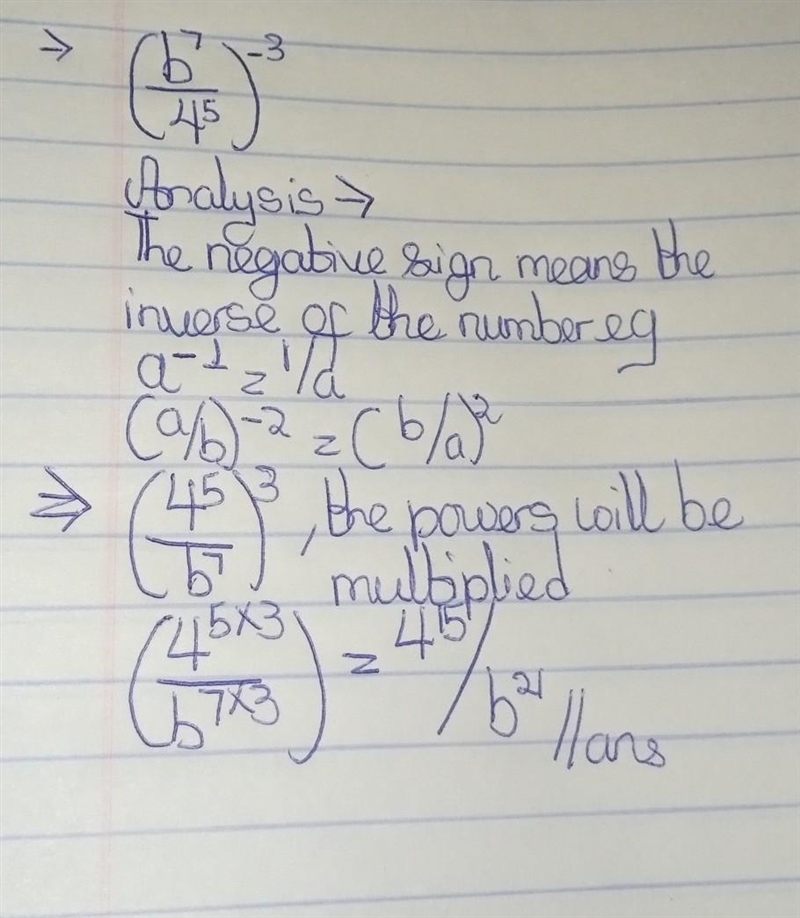 → (b⁷/4⁵)⁻³
Analysis →
The negative sign means the
inverse of the number eg
a⁻¹ = 1/a
(a/b)⁻² = (b/a)²
⇒ (4⁵/b⁷)³, the powers will be
multiplied
(4⁵ˣ³/b⁷ˣ³) = 4¹⁵/b²¹ //ans